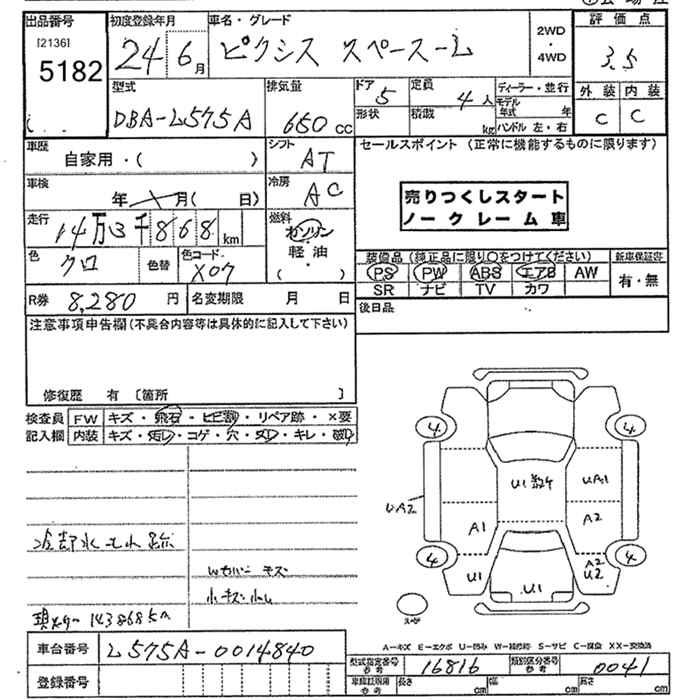 出品番号 初度登録年月 車名・グレード 2WD ・ 4WD 評価点
[2136] 5182 24 6月 ピクシス スペース 3.5
型式 排気量 ドア 定員 ディーラー・並行 外装 内装
DBA-L575A 650cc 5 4人 モデル年式 年 C C
形状 積載 kg ハンドル 左・右
車歴 シフト セールスポイント (正常に機能するものに限ります)
自家用・( ) AT
車検 冷房 売りつくしスタート
年 月( 日) AC ノークレーム車
走行 燃料
14万3千868km ガソリン・軽油( )
色 色替 色コード 装備品 (純正品に限り○をつけてください) 新車保証書
クロ X07 PS PW ABS エアB AW 有・無
SR ナビ TV カワ
R券 8,280円 名変期限 月 日 後日品
注意事項申告欄(不具合内容等は具体的に記入して下さい)
修復歴 有 [箇所 ]
検査員 FW キズ・飛石・ヒビ割・リペア跡・×要
記入欄 内装 キズ・汚レ・コゲ・穴・スレ・キレ・破レ
4 4
U1 UA1
UA2
A1 A2
4 4
U1 A2 U2
U1
冷却水モレ跡
キズ
小キズ
143868km
A-キズ E-エクボ U-凹み W-補修跡 S-サビ C-腐食 XX-交換済
車台番号 L575A-0014840 型式指定番号 16816 類別区分番号 0041
登録番号 長さ cm 幅 cm 高さ cm